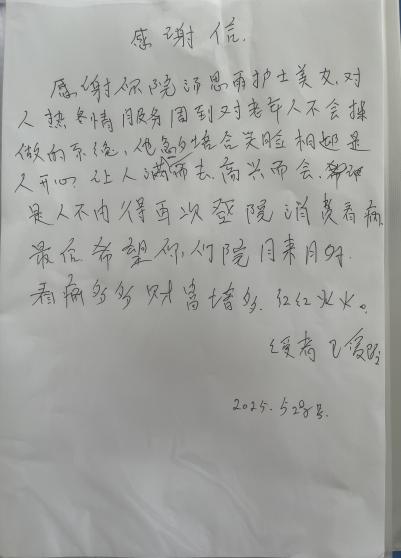 感谢信.
感谢你院沛思雨护士美女.对
人热多情服务周到对老年人不会操
做的系统.他多嘴合笑脸相都是
人开心 让人满而去.高兴而会.
是人不由得再次登院消费看病
最后希望你们院月来月好.
看病多多财富增多.红红火火。
患者 王爱
2025.5 29号.